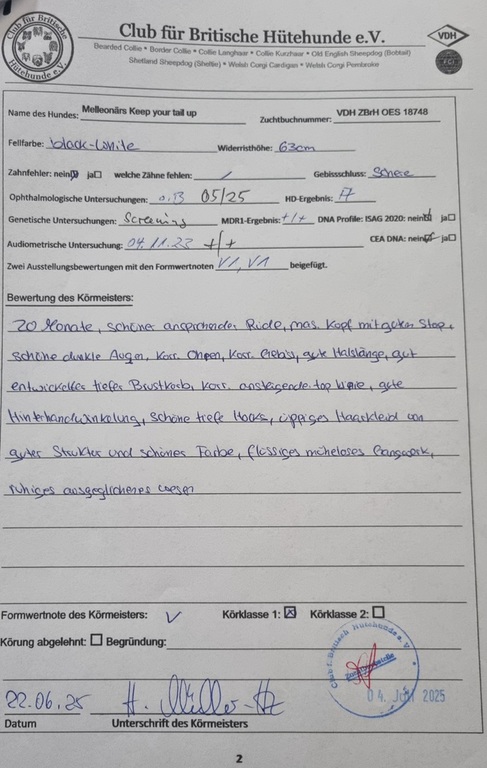 Club für Britische Hütehunde e.V.
Bearded Collie • Border Collie • Collie Langhaar • Collie Kurzhaar • Old English Sheepdog (Bobtail)
Shetland Sheepdog (Sheltie) • Welsh Corgi Cardigan • Welsh Corgi Pembroke
Club für Britische Hütehunde e.V.
VDH
FCI
Name des Hundes: Melleonärs Keep your tail up Zuchtbuchnummer: VDH ZBrH OES 18748
Fellfarbe: black-white Widerristhöhe: 63cm
Zahnfehler: nein☒ ja☐ welche Zähne fehlen: / Gebissschluss: Schere
Ophthalmologische Untersuchungen: o.B 05/25 HD-Ergebnis: A
Genetische Untersuchungen: Screening MDR1-Ergebnis: +/+ DNA Profile: ISAG 2020: nein☒ ja☐
Audiometrische Untersuchung: 04.11.23 +/+ CEA DNA: nein☒ ja☐
Zwei Ausstellungsbewertungen mit den Formwertnoten V1, V1 beigefügt.
Bewertung des Körmeisters:
20 Monate, schöner ansprechender Rüde, mas. Kopf mit guten Stop,
schöne dunkle Augen, korr. Ohren, korr. Gebiss, gute Halslänge, gut
entwickelter tiefer Brustkorb, korr. ansteigende top linie, gute
Hinterhandwinkelung, schöne tiefe Hocks, üppiges Haarkleid von
guter Struktur und schönes Farbe, flüssiges müheloses Gangwerk,
ruhiges ausgeglichenes wesen
Formwertnote des Körmeisters: V Körklasse 1: ☒ Körklasse 2: ☐
Körung abgelehnt: ☐ Begründung:
Club f. Britisch Hütehunde e. V.
04. JULI 2025
22.06.25 H.
Datum Unterschrift des Körmeisters
2